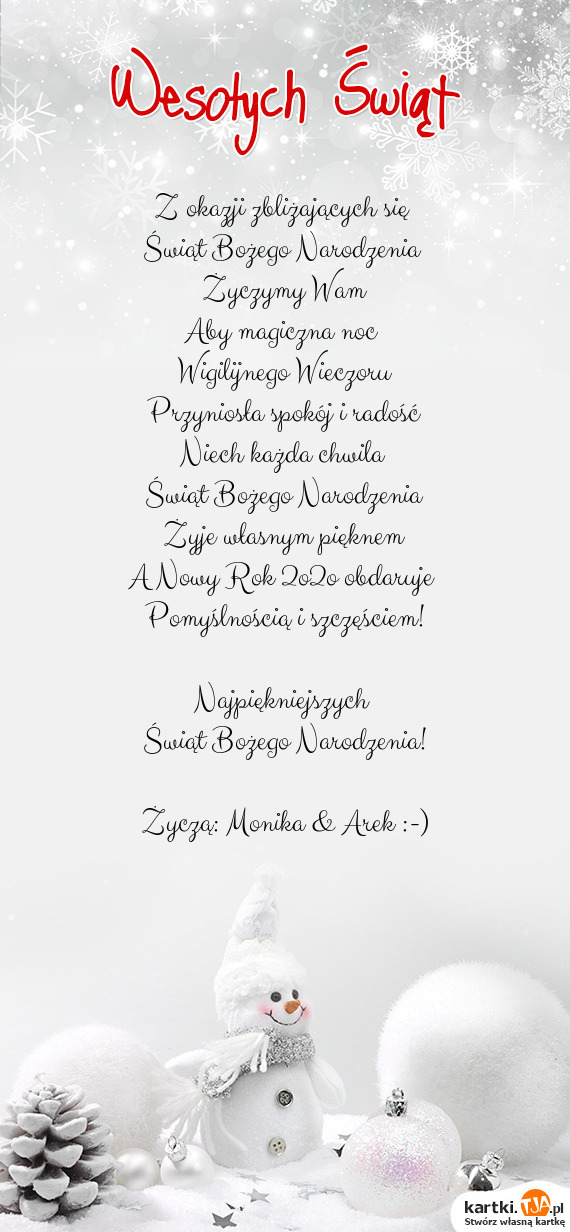 Wesołych Świąt
Z okazji zbliżających się
Świąt Bożego Narodzenia
Życzymy Wam
Aby magiczna noc
Wigilijnego Wieczoru
Przyniosła spokój i radość
Niech każda chwila
Świąt Bożego Narodzenia
Żyje własnym pięknem
A Nowy Rok 2020 obdaruje
Pomyślnością i szczęściem!
Najpiękniejszych
Świąt Bożego Narodzenia!
Życzą: Monika & Arek :-)
kartki.TJA.pl
Stwórz własną kartkę